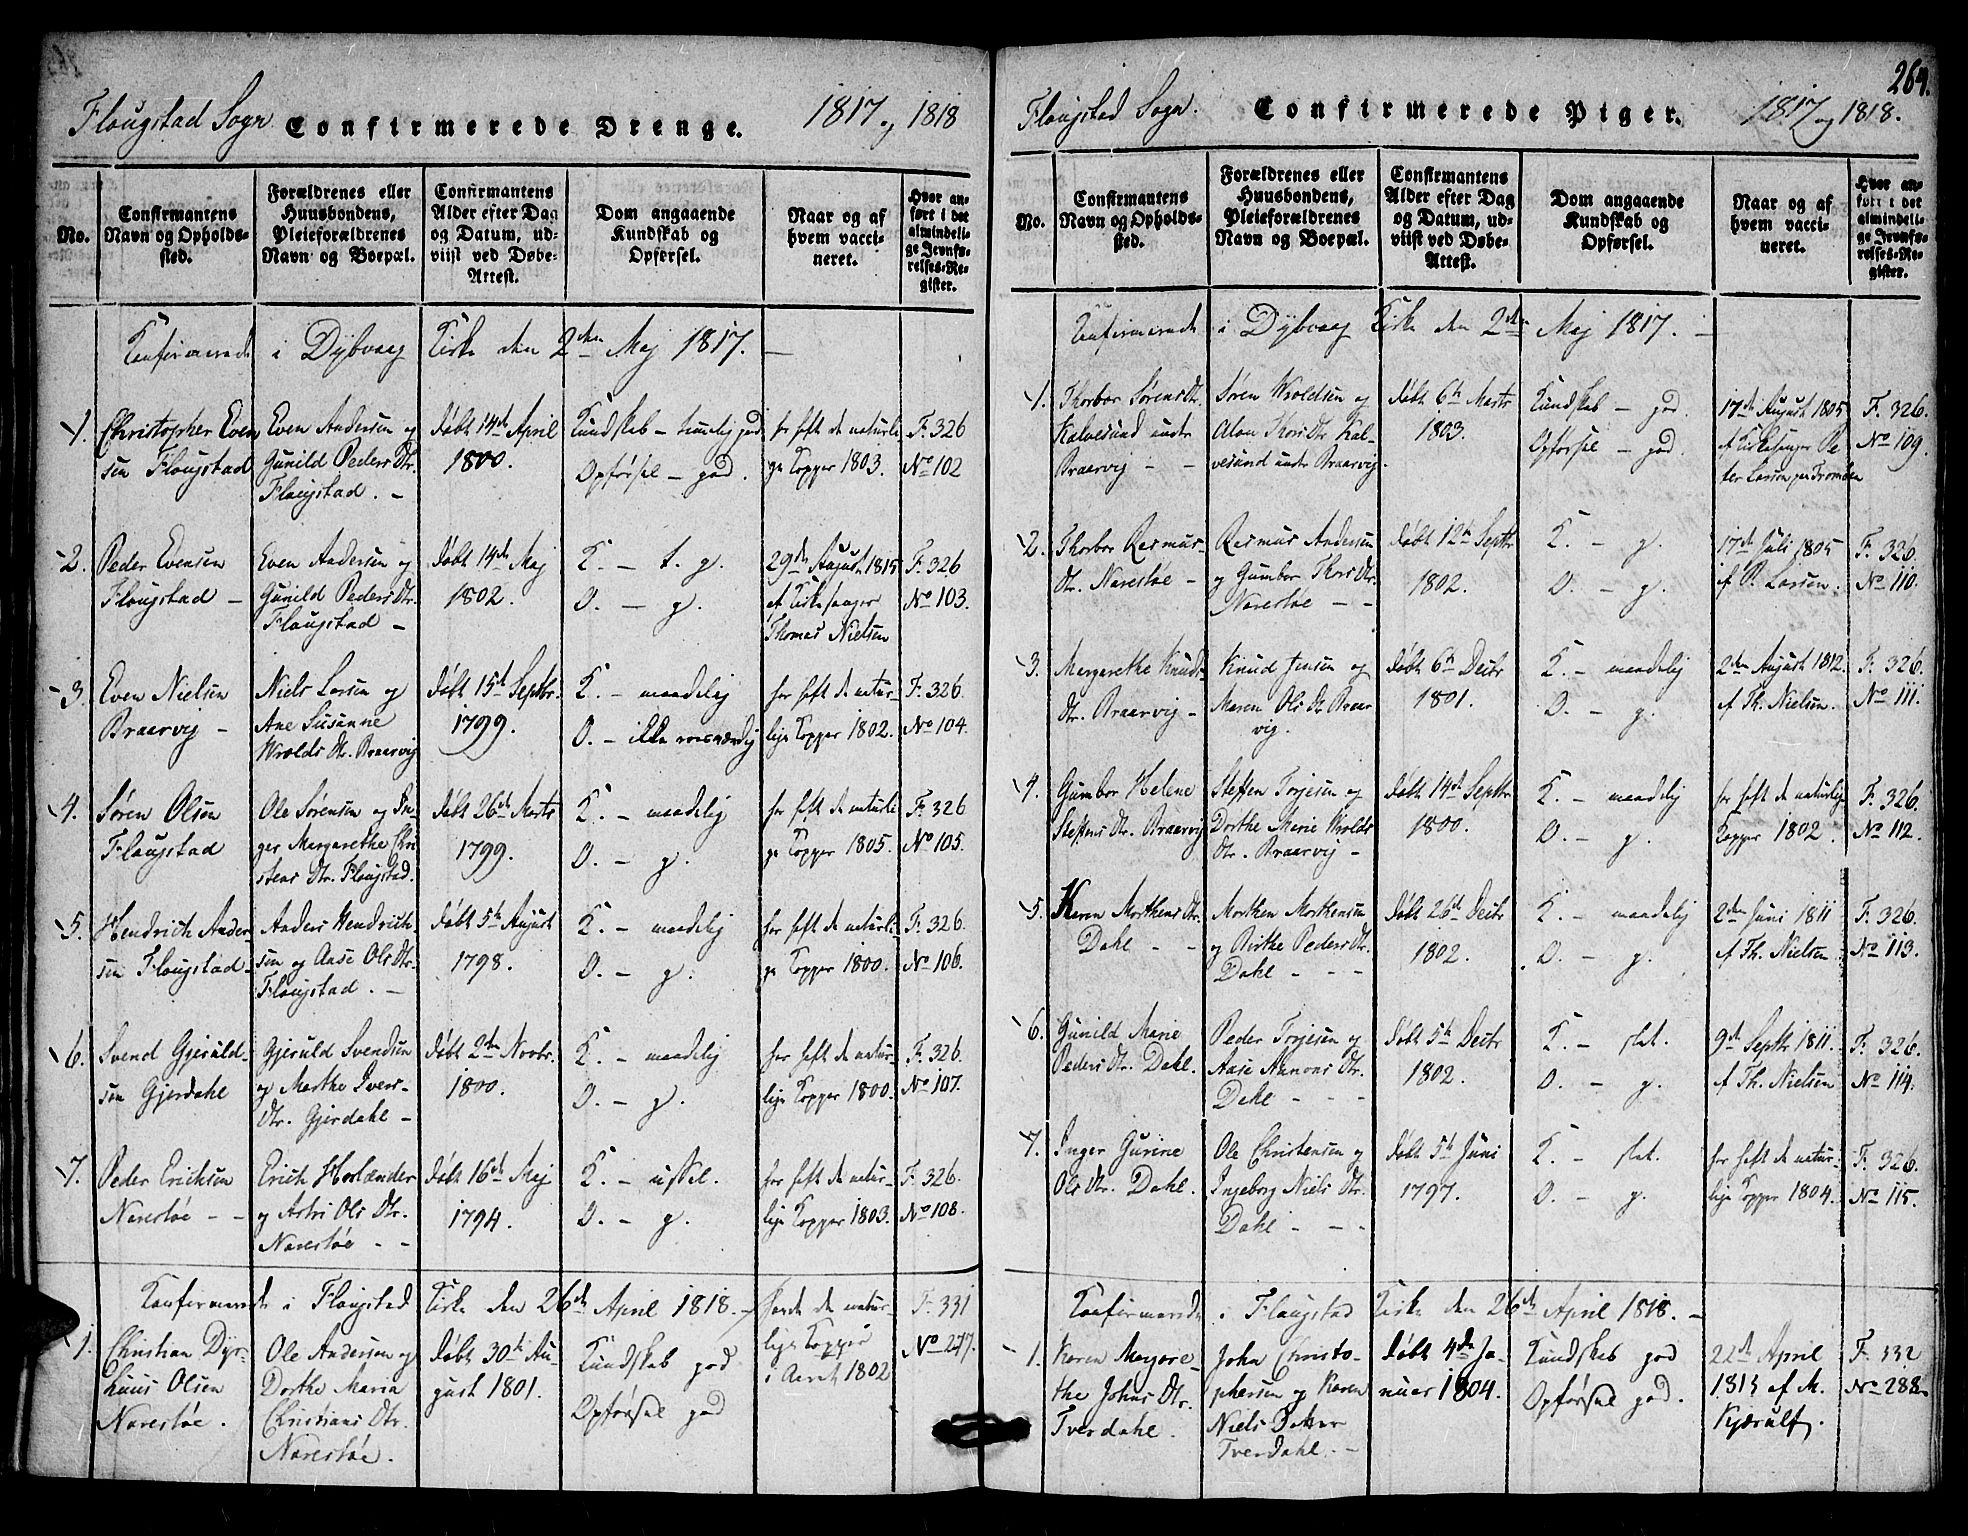 Flougstad Sogn Confirmerede Drenge. 1817 og 1818
No.
Confirmantens
Navn og Opholds-
sted.
Forældrenes eller
Huusbondens,
Pleieforældrenes
Navn og Boepæl.
Confirmantens
Alder efter Dag
og Datum, ud-
viist ved Døbe-
Attest.
Dom angaaende
Kundskab og
Opførsel.
Naar og af
hvem vacci-
neret.
Hvor an-
ført i det
almindeli-
ge Jevnfø-
relses-Re-
gister.
Konfirmerede i Dybvaag Kirke den 2den Maj 1817. —
1.
Christopher Even
sen Flougstad
Even Andersen og
Gunild Peders Dtr.
Flougstad. –
døbt 14de April
1800.
Kundskab – temelig god
Opførsel – god.
har haft de naturli
ge Kopper 1803.
F. 326
No 102
2.
Peder Evensen
Flougstad –
Even Andersen og
Gunild Peders Dtr.
Flougstad –
døbt 14de Maj
1802.
K. – t. g.
O. – g.
29de August 1815
af Kirkesanger
Thomas Nielsen
F. 326
No 103.
3.
Even Nielsen
Braarvig –
Niels Larsen og
Ane Susanne
Wrolds Dtr. Braarvig
døbt 15de Septbr.
1799.
K. – maadelig
O. – ikke
har haft de natur-
lige Kopper 1802.
F. 326.
No 104.
4.
Søren Olsen
Flougstad
Ole Sørensen og In-
ger Margarethe Chri
stens Dtr. Flougstad.
døbt 26de Marts
1799.
K. – maadelig
O. – g.
har haft de naturli
ge Kopper 1805.
F. 326
No 105.
5.
Hendrich Ander-
sen Flougstad –
Anders Hendrich-
sen og Aase Ols Dtr.
Flougstad. –
døbt 5te August
1798.
K. – maadelig
O. – g.
har haft de naturli-
ge Kopper 1800.
F. 326.
No 106.
6.
Svend Gjeruld-
sen Gjerdahl
Gjeruld Svendsen
og Marthe Ivers-
Dtr. Gjerdahl –
døbt 2den Novbr.
1800.
K. – maadelig
O. – g.
har haft de natur-
lige Kopper 1800.
F. 326.
No 107.
7.
Peder Erichsen
Narestøe – –
Erich Horlænder
og Astri Ols Dtr.
Narestøe – –
døbt 16de Maj
1794.
K. – ussel.
O. – g.
har haft de natur-
lige Kopper 1803.
F. 326.
No 108.
Konfirmerede i Flougstad Kirke den 26de April 1818. –
1.
Christian Dyr-
huus Olsen
Narestøe.
Ole Andersen og
Dorthe Maria
Christians Dtr.
Narestøe.
døbt 30te Au-
gust 1801.
Kundskab god
Opførsel god
havde de natur-
lige Kopper
i Aaret 1802
F. 331
No 277.
264.
Flougstad Sogn. Confirmerede Piger. 1817 og 1818.
No.
Confirmantens
Navn og Opholds-
sted.
Forældrenes eller
Huusbondens,
Pleieforældrenes
Navn og Boepæl.
Confirmantens
Alder efter Dag
og Datum, ud-
viist ved Døbe-
Attest.
Dom angaaende
Kundskab og
Opførsel.
Naar og af
hvem vacci-
neret.
Hvor an-
ført i det
almindeli-
ge Jevnfø-
relses-Re-
gister.
Konfirmerede i Dybvaag Kirke den 2den Maj 1817. –
1.
Thorbor Sørens Dtr.
Kalvesund under
Braarvig – –
Søren Wroldsen og
Alou Thors Dtr. Kal-
vesund under Braarvig.
døbt 6te Marts
1803.
Kundskab – god.
Opførsel – god.
17de August 1805
af Kirkesanger Pe
ter Larsen paa Tromøen
F. 326.
No 109.
2.
Thorbor Rasmus-
Dtr. Narestøe –
Rasmus Andersen
og Gumbor Thors Dtr.
Narestøe – –
døbt 12te Septbr
1802.
K. – g.
O. – g.
17de Juli 1805
af P. Larsen.
F. 326.
No 110.
3.
Margarethe Knuds-
Dtr. Braarvig –
Knud Jensen og
Maren Ols Dtr. Braar
vig.
døbt 6te Decbr
1801.
K. – maadelig
O. – g.
2den August 1812.
af Th. Nielsen.
F. 326.
No 111.
4.
Gumbor Helene
Steffens Dtr. Braarvig
Steffen Torjesen og
Dorthe Marie Wrolds
Dtr. Braarvig –
døbt 14de Septbr
1800.
K. – maadelig
O. – g.
har haft de naturlige
Kopper 1802.
F. 326.
No 112.
5.
Karen Morthens Dtr.
Dahl – –
Morthen Morthensen
og Birthe Peders Dtr.
Dahl – – –
døbt 26de Decbr
1802.
K. – maadelig
O. – g.
2den Juni 1811
af Th. Nielsen
F. 326.
No 113.
6.
Gunild Marie
Peders Dtr. Dahl.
Peder Torjesen og
Aase Aanons Dtr.
Dahl – – –
døbt 5te Decbr
1802.
K. – slet.
O. – g.
9de Septbr 1811.
af Th. Nielsen
F. 326.
No 114.
7.
Inger Gurine
Ols Dtr. Dahl.
Ole Christensen og
Ingeborg Niels Dtr.
Dahl – – –
døbt 5te Juni
1797.
K. – slet.
O. – g.
har haft de natur-
lige Kopper 1804.
F. 326.
No 115.
Konfirmerede i Flougstad Kirke den 26de April 1818. –
1.
Karen Margre-
the Johns Dtr.
Tverdahl.
John Christo-
phersen og Karen
Niels Datter
Tverdahl. –
døbt 4de Ja-
nuar 1804.
Kundskab god
Opførsel god.
22de April
1813 af M.
Kjærulf.
F. 332
No 288.